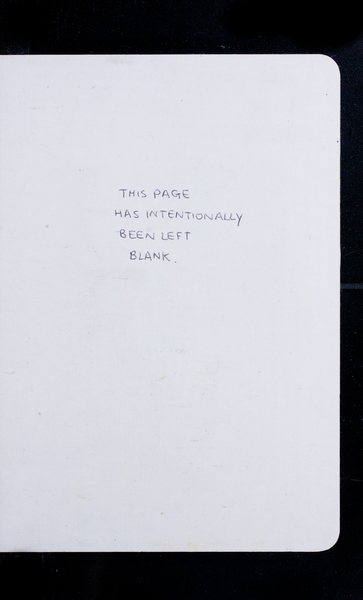 THIS PAGE
HAS INTENTIONALLY
BEEN LEFT
BLANK.